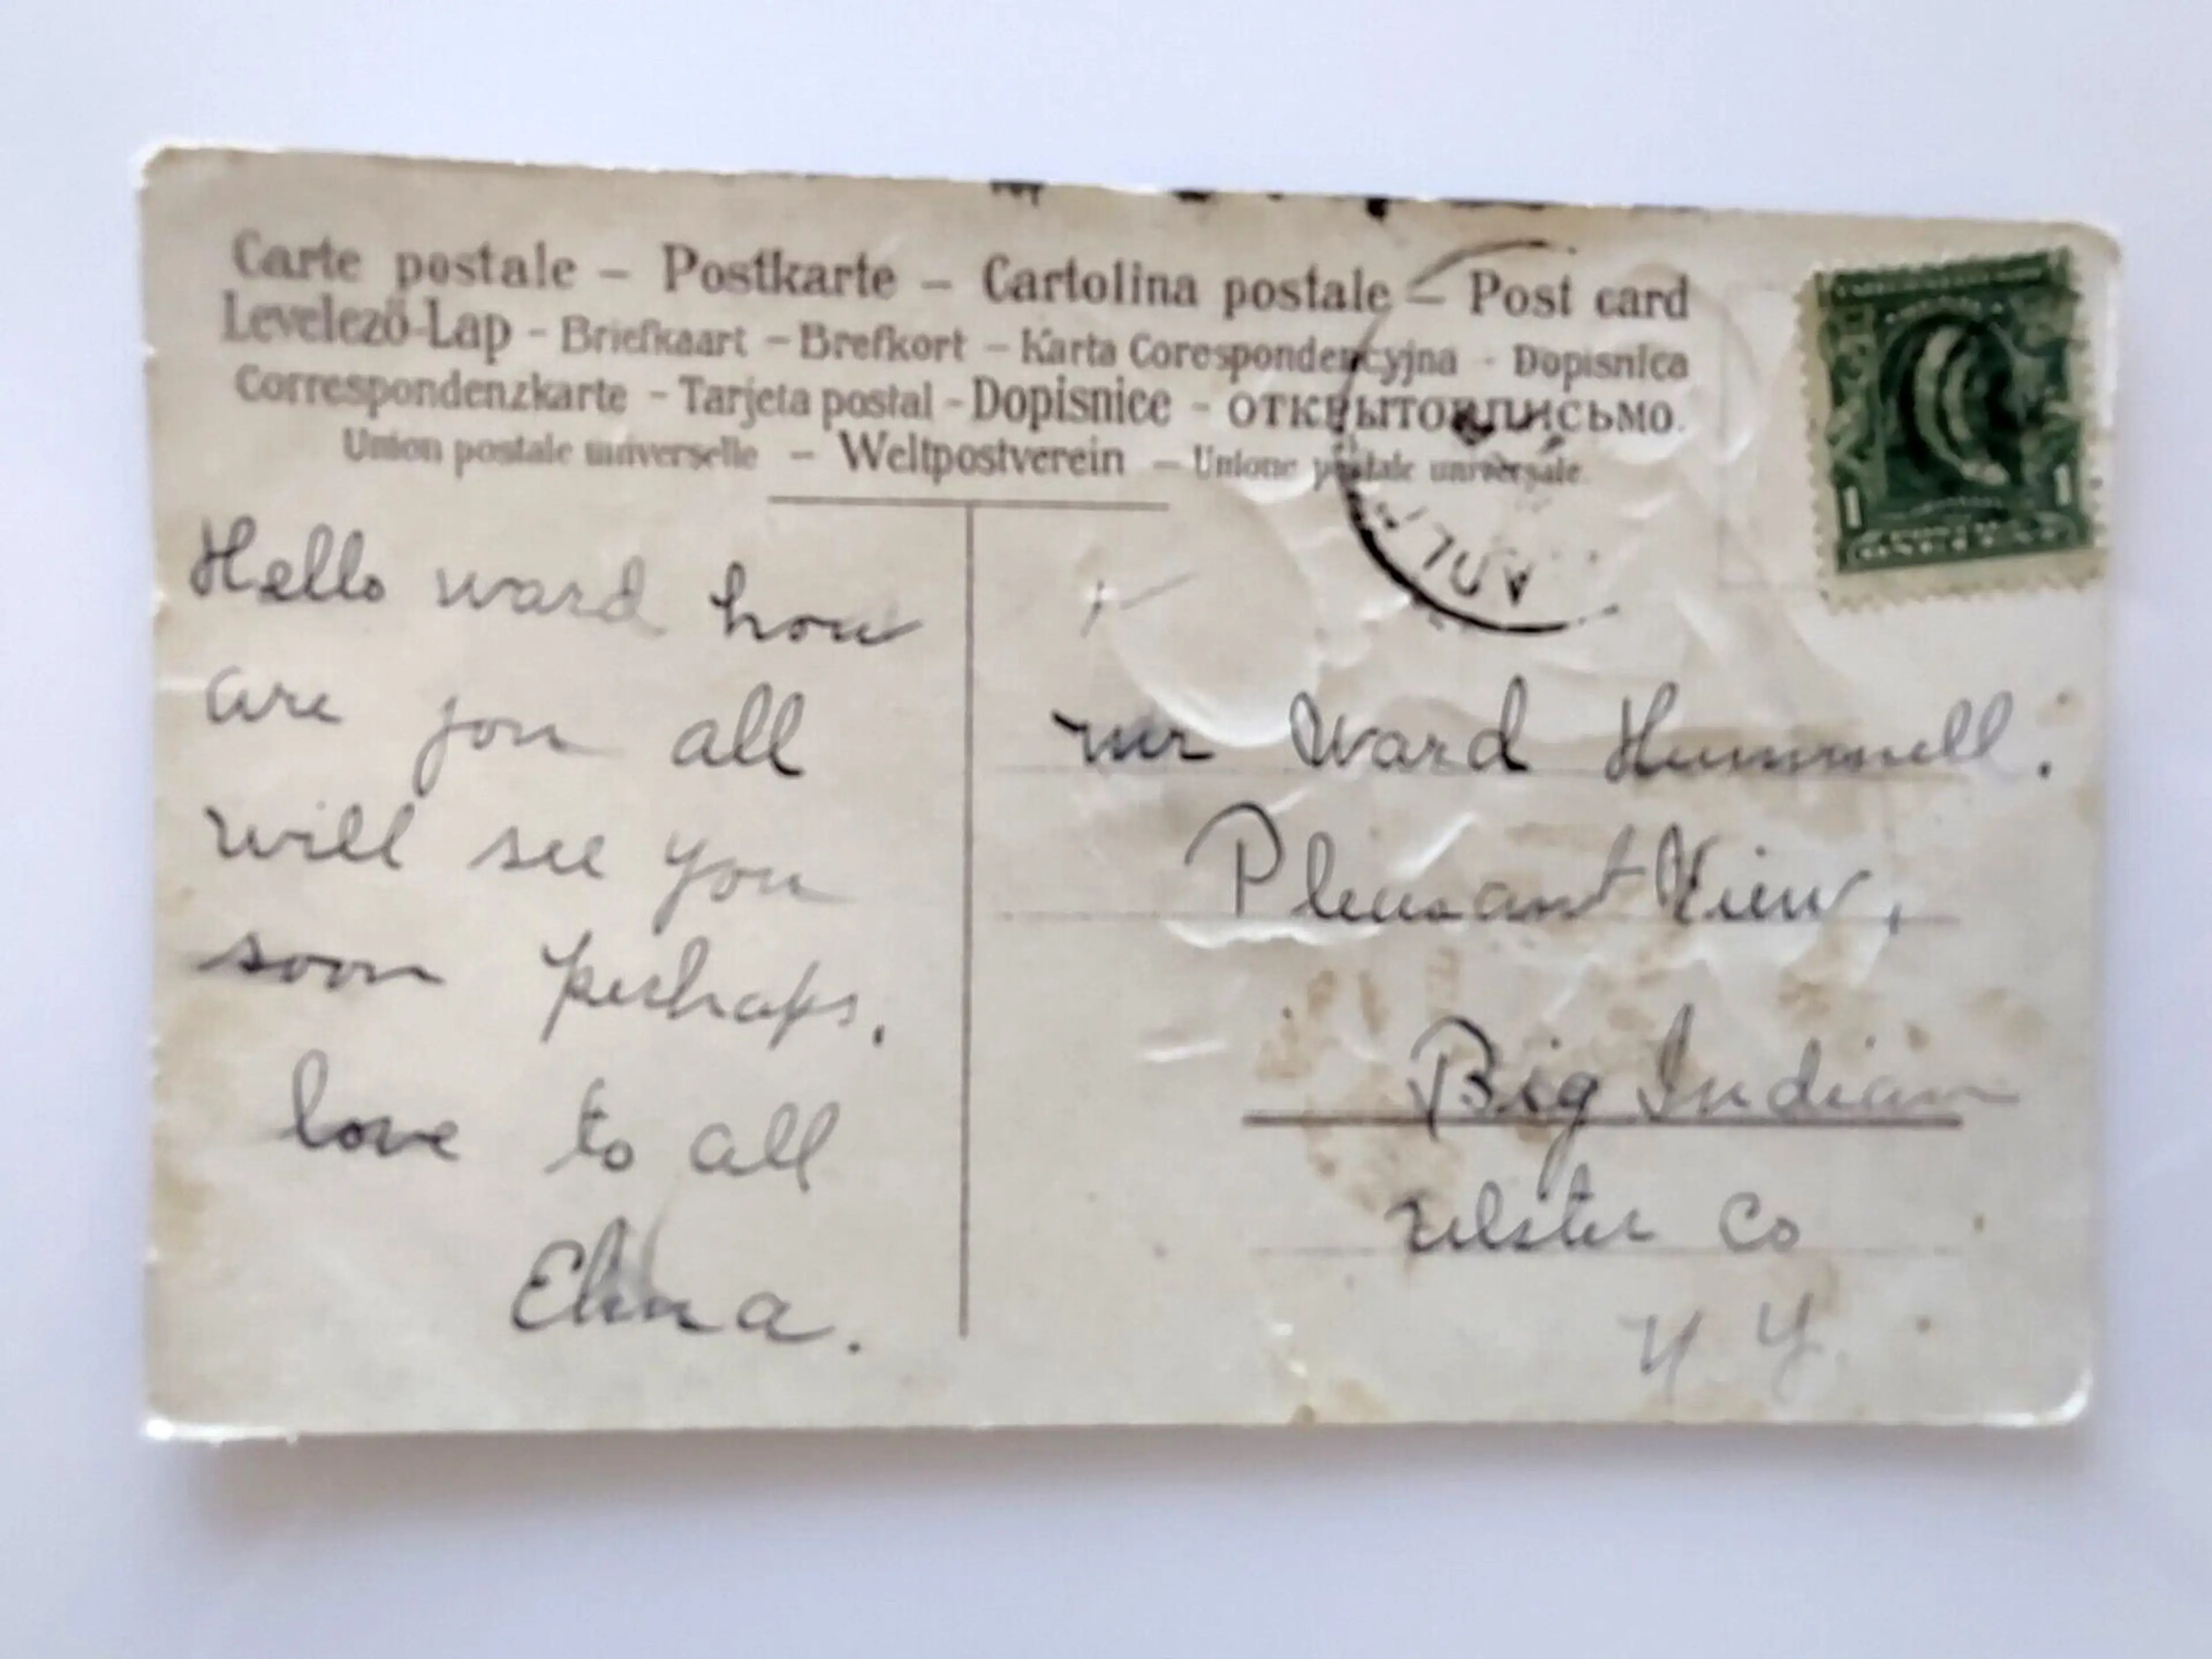 Carte postale – Postkarte – Cartolina postale – Post card
Levelező-Lap – Briefkaart – Brefkort – Karta Corespondencyjna – Dopisnica
Correspondenzkarte – Tarjeta postal – Dopisnice – ОТКРЫТОЕ ПИСЬМО.
Union postale universelle – Weltpostverein – Unione postale universale.
Hello ward how
are you all
will see you
soon perhaps.
love to all
mr Ward Hummell.
Pleasant View,
Big Indian
Ulster Co
N Y.
1 1